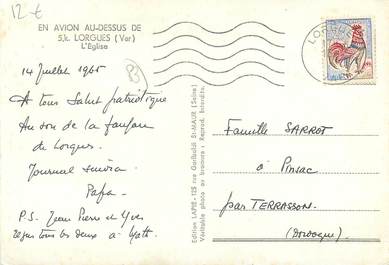 12 €
EN AVION AU-DESSUS DE
5.k. LORGUES (Var)
L'Église
LORGUES
14 Juillet 1965
A tous Salut patriotique
Au son de la fanfare
de Lorgues.
Journal suivra
Papa.
P.S. Jean Pierre et Yves
reçus tous les deux à
Edition LAPIE - 125 rue Garibaldi St-MAUR (Seine)
Véritable photo au bromure : Reprod. Interdite.
Famille SARROT
à Pinsac
par TERRASSON
(Dordogne)